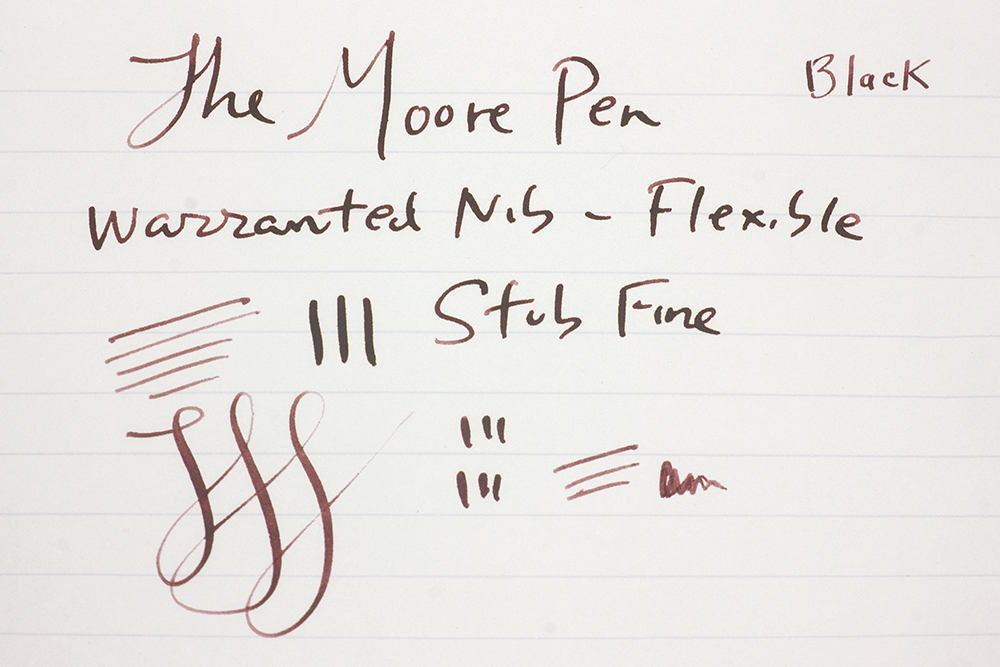 The Moore Pen
Black
Warranted Nib - Flexible
Stub Fine